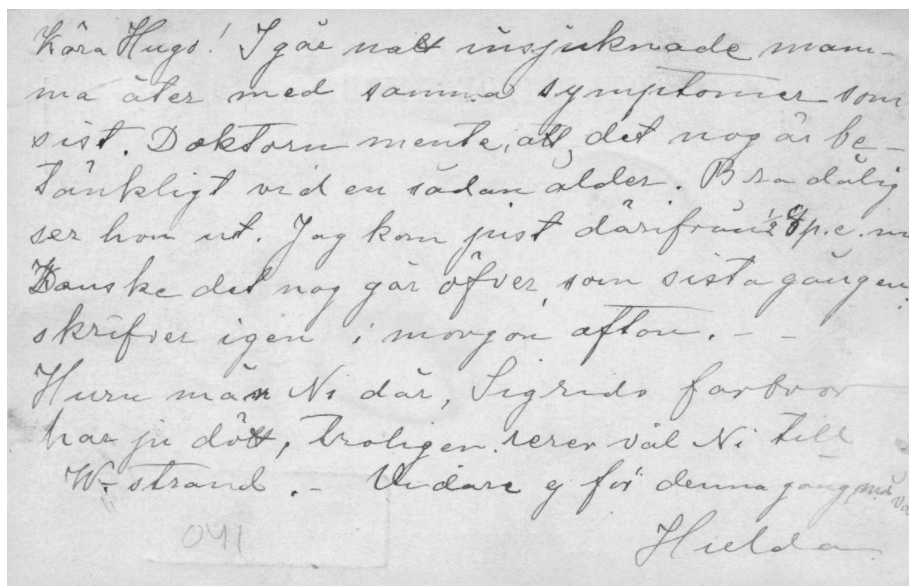 Kära Hugo! I går natt insjuknade mam-
ma åter med samma symptomer som
sist. Doktorn mente, att det nog är be-
tänkligt vid en sådan ålder. Bra dålig
ser hon ut. Jag kom just därifrån ½ p.e.m
Kanske det nog går öfver som sista gången
skrifver igen i morgon afton. -
Huru mån Ni där, Sigrids farbror
har ju dött, troligen reser väl Ni till
W-strand. - Vidare ej för denna gång må
Hielda
041